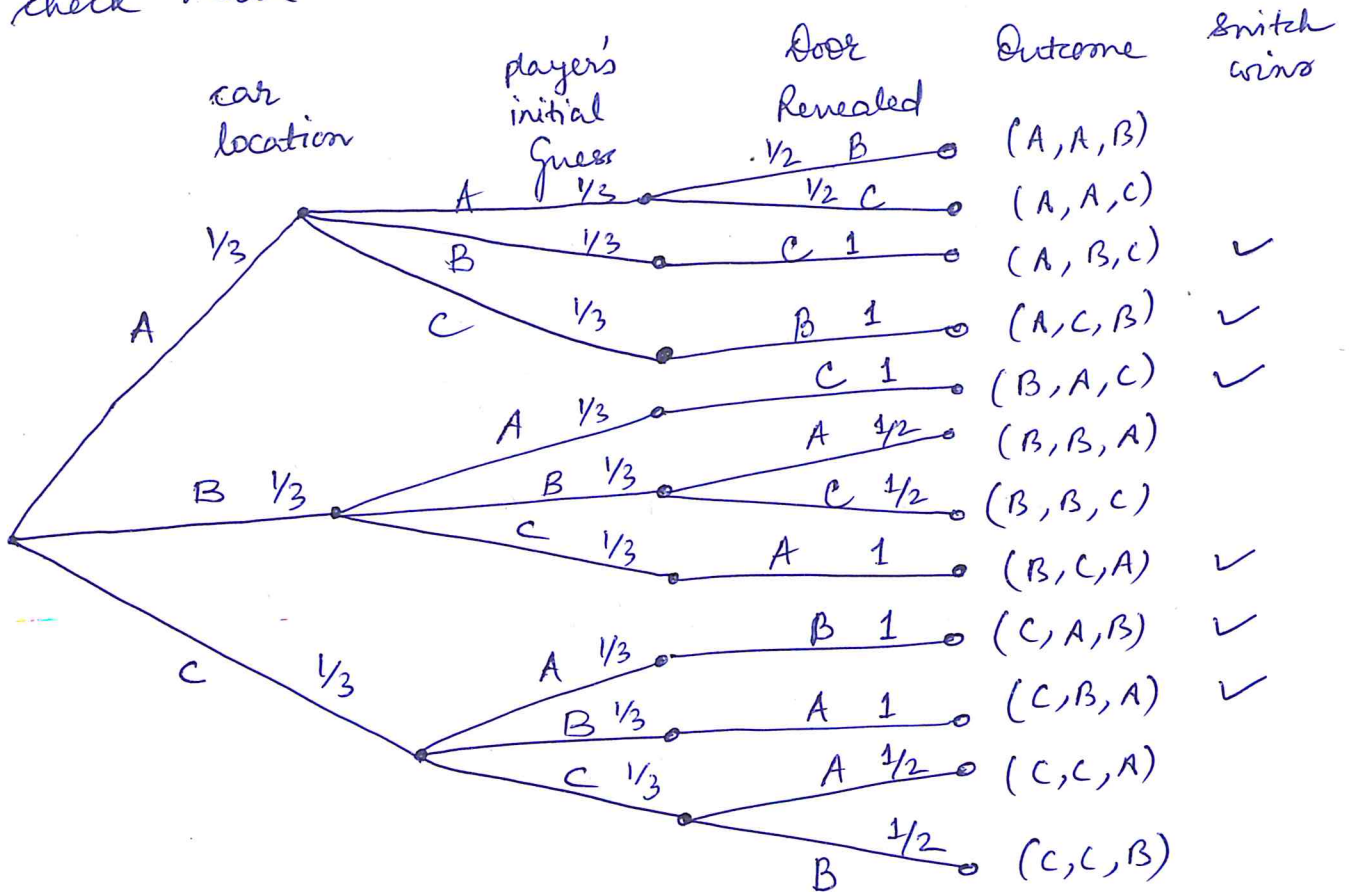 check
car
location
player's
initial
Guess
Door
Revealed
Outcome
Switch
wins
1/3
A
B 1/3
C 1/3
A 1/3
B 1/3
C 1/3
A 1/3
B 1/3
C 1/3
A 1/3
B 1/3
C 1/3
1/2 B
1/2 C
C 1
B 1
C 1
A 1/2
C 1/2
A 1
B 1
A 1
A 1/2
1/2
B
(A, A, B)
(A, A, C)
(A, B, C) ✓
(A, C, B) ✓
(B, A, C) ✓
(B, B, A)
(B, B, C)
(B, C, A) ✓
(C, A, B) ✓
(C, B, A) ✓
(C, C, A)
(C, C, B)